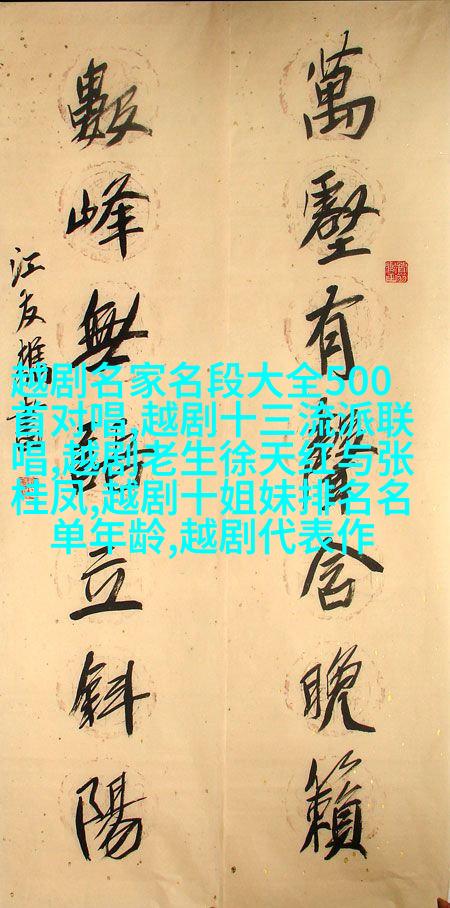 萬壑有聲含晚籟
數峰無語立斜陽
江友樵書
越剧名家名段大全500
首对唱,越剧十三流派联
唱,越剧老生徐天红与张
桂凤,越剧十姐妹排名名
单年龄,越剧代表作